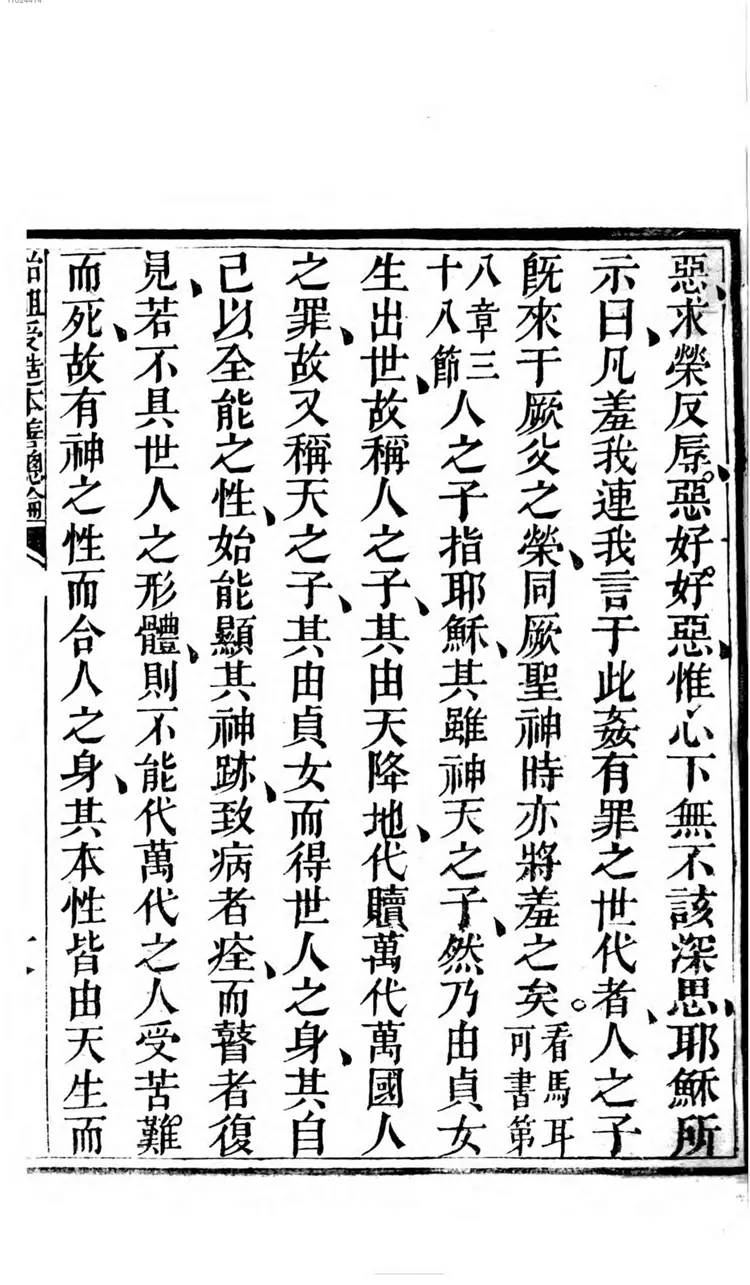 惡、求榮反辱。惡好、好惡、惟心下無不該深思、耶穌所
示曰、凡羞我連我言于此姦有罪之世代者、人之子
旣來于厥父之榮、同厥聖神時亦將羞之矣。看馬耳可書第
八章三十八節人之子指耶穌、其雖神天之子、然乃由貞女
生出世、故稱人之子、其由天降地、代贖萬代萬國人
之罪、故又稱天之子、其由貞女而得世人之身、其自
己以全能之性、始能顯其神跡、致病者痊、而瞽者復
見、若不具世人之形體、則不能代萬代之人受苦難
而死、故有神之性而合人之身、其本性皆由天生而
始祖受造本善總論